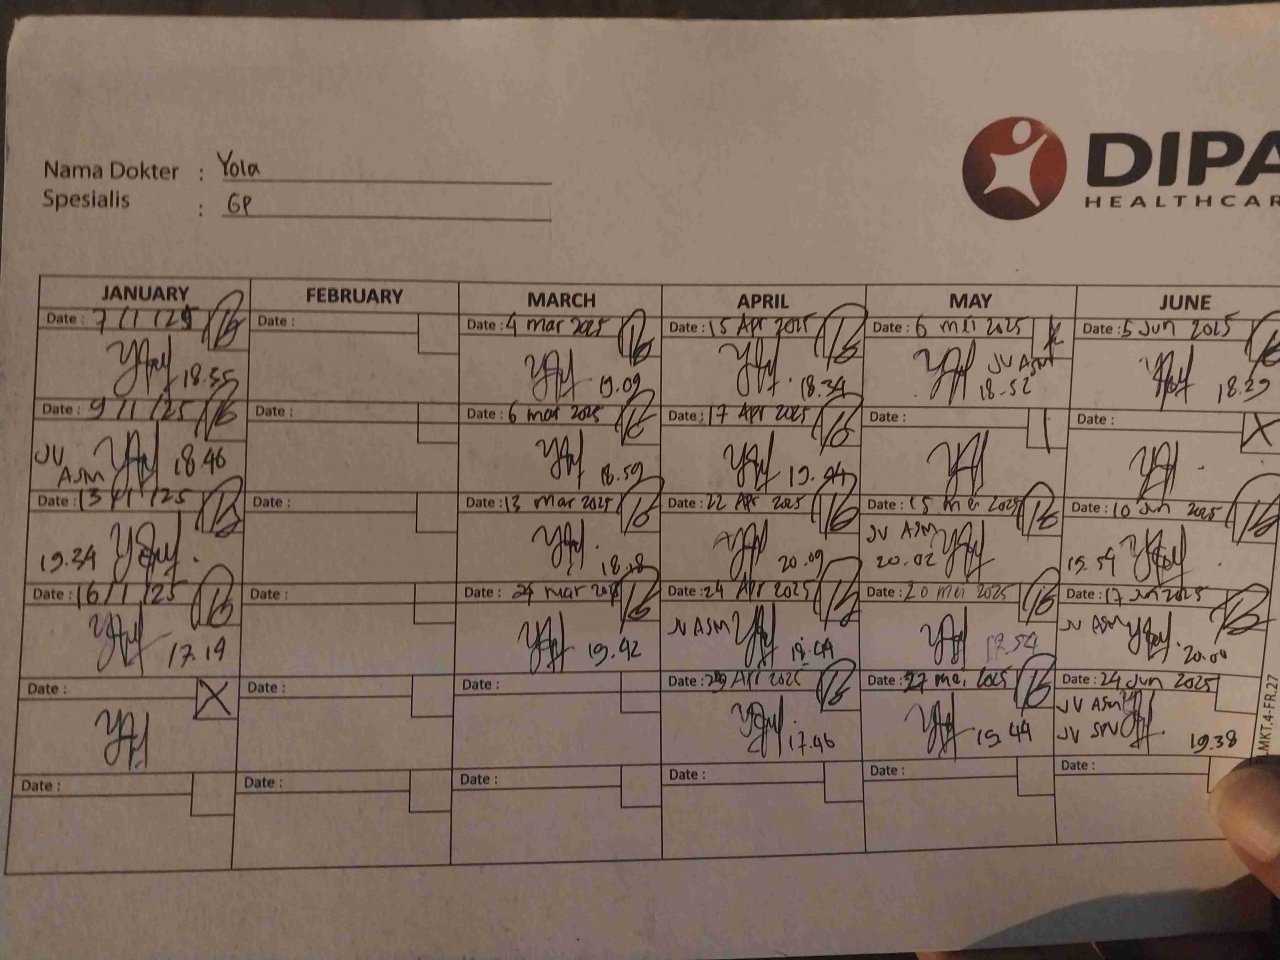 Nama Dokter : Yola
Spesialis : GP
DIPA
HEALTHCAR
JANUARY FEBRUARY MARCH APRIL MAY JUNE
Date : 7/1/25 Date : Date : 4 mar 2025 Date : 15 Apr 2025 Date : 6 mei 2025 Date : 5 Jun 2025
18.55 19.09 18.34 JV ASM 18.52 18.29
Date : 9/1/25 Date : Date : 6 mar 2025 Date : 17 Apr 2025 Date : Date :
JV ASM 18.46 18.59 19.44
Date : 13/1/25 Date : Date : 13 mar 2025 Date : 22 Apr 2025 Date : 15 mei 2025 Date : 10 Jun 2025
19.34 18.18 20.09 JV ASM 20.02 19.54
Date : 16/1/25 Date : Date : mar Date : 24 Apr 2025 Date : 20 mei 2025 Date : 17 Jun 2025
17.19 19.42 JV ASM 17.54 JV ASM
Date : Date : Date : Date : 29 Apr 2025 Date : 27 mei 2025 Date : 24 Jun 2025
17.46 19.44 JV ASM
JV SPV 19.38
Date : Date : Date : Date : Date : Date :
MKT.4-FR.27